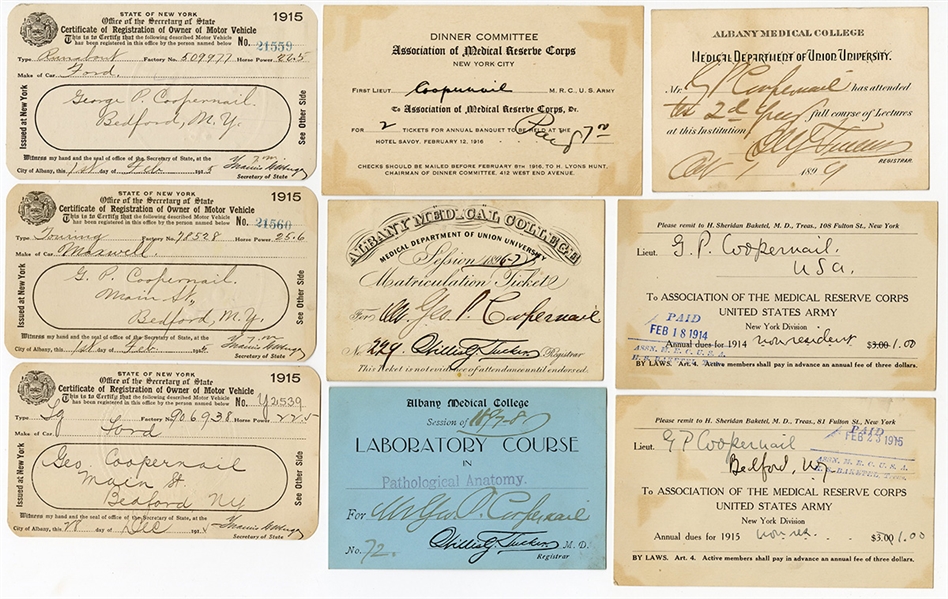 STATE OF NEW YORK
Office of the Secretary of State
1915
Certificate of Registration of Owner of Motor Vehicle
This is to Certify that the following described Motor Vehicle
has been registered in this office by the person named below
No. 21559
Type Runabout Factory No. 509977 Horse Power 22.5
Make of Car Ford.
George P. Coopernail.
Bedford, N.Y.
Issued at New York
See Other Side
Witness my hand and the seal of office of the Secretary of State, at the
City of Albany, this 1st day of Feb 1915
Secretary of State
STATE OF NEW YORK
Office of the Secretary of State
1915
Certificate of Registration of Owner of Motor Vehicle
This is to Certify that the following described Motor Vehicle
has been registered in this office by the person named below
No. 21560
Type Touring Factory No. 78528 Horse Power 25.6
Make of Car Maxwell.
G. P. Coopernail.
Main St,
Bedford, N.Y.
Issued at New York
See Other Side
Witness my hand and the seal of office of the Secretary of State, at the
City of Albany, this 1st day of Feb 1915
Secretary of State
STATE OF NEW YORK
Office of the Secretary of State
1915
Certificate of Registration of Owner of Motor Vehicle
This is to Certify that the following described Motor Vehicle
has been registered in this office by the person named below
No. Y2539
Type Factory No. 906938 Horse Power 22.5
Make of Car Ford
Geo. Coopernail
Main St.
Bedford NY
Issued at New York
See Other Side
Witness my hand and the seal of office of the Secretary of State, at the
City of Albany, this 28 day of Dec 191
Secretary of State
DINNER COMMITTEE
Association of Medical Reserve Corps
NEW YORK CITY
FIRST LIEUT Coopernail M. R. C. U. S. ARMY
To Association of Medical Reserve Corps, Dr.
FOR 2 TICKETS FOR ANNUAL BANQUET TO BE HELD AT THE
HOTEL SAVOY, FEBRUARY 12, 1916
7.00
CHECKS SHOULD BE MAILED BEFORE FEBRUARY 8TH 1916, TO H. LYONS HUNT,
CHAIRMAN OF DINNER COMMITTEE, 412 WEST END AVENUE.
ALBANY MEDICAL COLLEGE
MEDICAL DEPARTMENT OF UNION UNIVERSITY
Session 1896-7
Matriculation Ticket
For Mr. Geo. P. Coopernail
No. 229. Willis G. Tucker Registrar
This Ticket is not evidence of attendance until endorsed.
Albany Medical College
Session of 1897-8
LABORATORY COURSE
IN
Pathological Anatomy.
For Mr Geo. P. Coopernail
No. 72. Willis G. Tucker M. D.
Registrar
ALBANY MEDICAL COLLEGE
MEDICAL DEPARTMENT OF UNION UNIVERSITY.
Mr. G P Coopernail has attended
2d year full course of Lectures
at this Institution.
W G Tucker
REGISTRAR.
1899
Please remit to H. Sheridan Baketel, M. D., Treas., 108 Fulton St., New York
Lieut. G. P. Coopernail.
USA.
To ASSOCIATION OF THE MEDICAL RESERVE CORPS
UNITED STATES ARMY
New York Division
PAID
FEB 18 1914
ASSN. M. R. C. U. S. A.
Annual dues for 1914 nonresident $3.00 1.00
BY LAWS. Art. 4. Active members shall pay in advance an annual fee of three dollars.
Please remit to H. Sheridan Baketel, M. D., Treas., 81 Fulton St., New York
Lieut. G P Coopernail
Bedford,
PAID
FEB 23 1915
ASSN. M. R. C. U. S. A.
To ASSOCIATION OF THE MEDICAL RESERVE CORPS
UNITED STATES ARMY
New York Division
Annual dues for 1915 non res. $3.00 1.00
BY LAWS. Art. 4. Active members shall pay in advance an annual fee of three dollars.